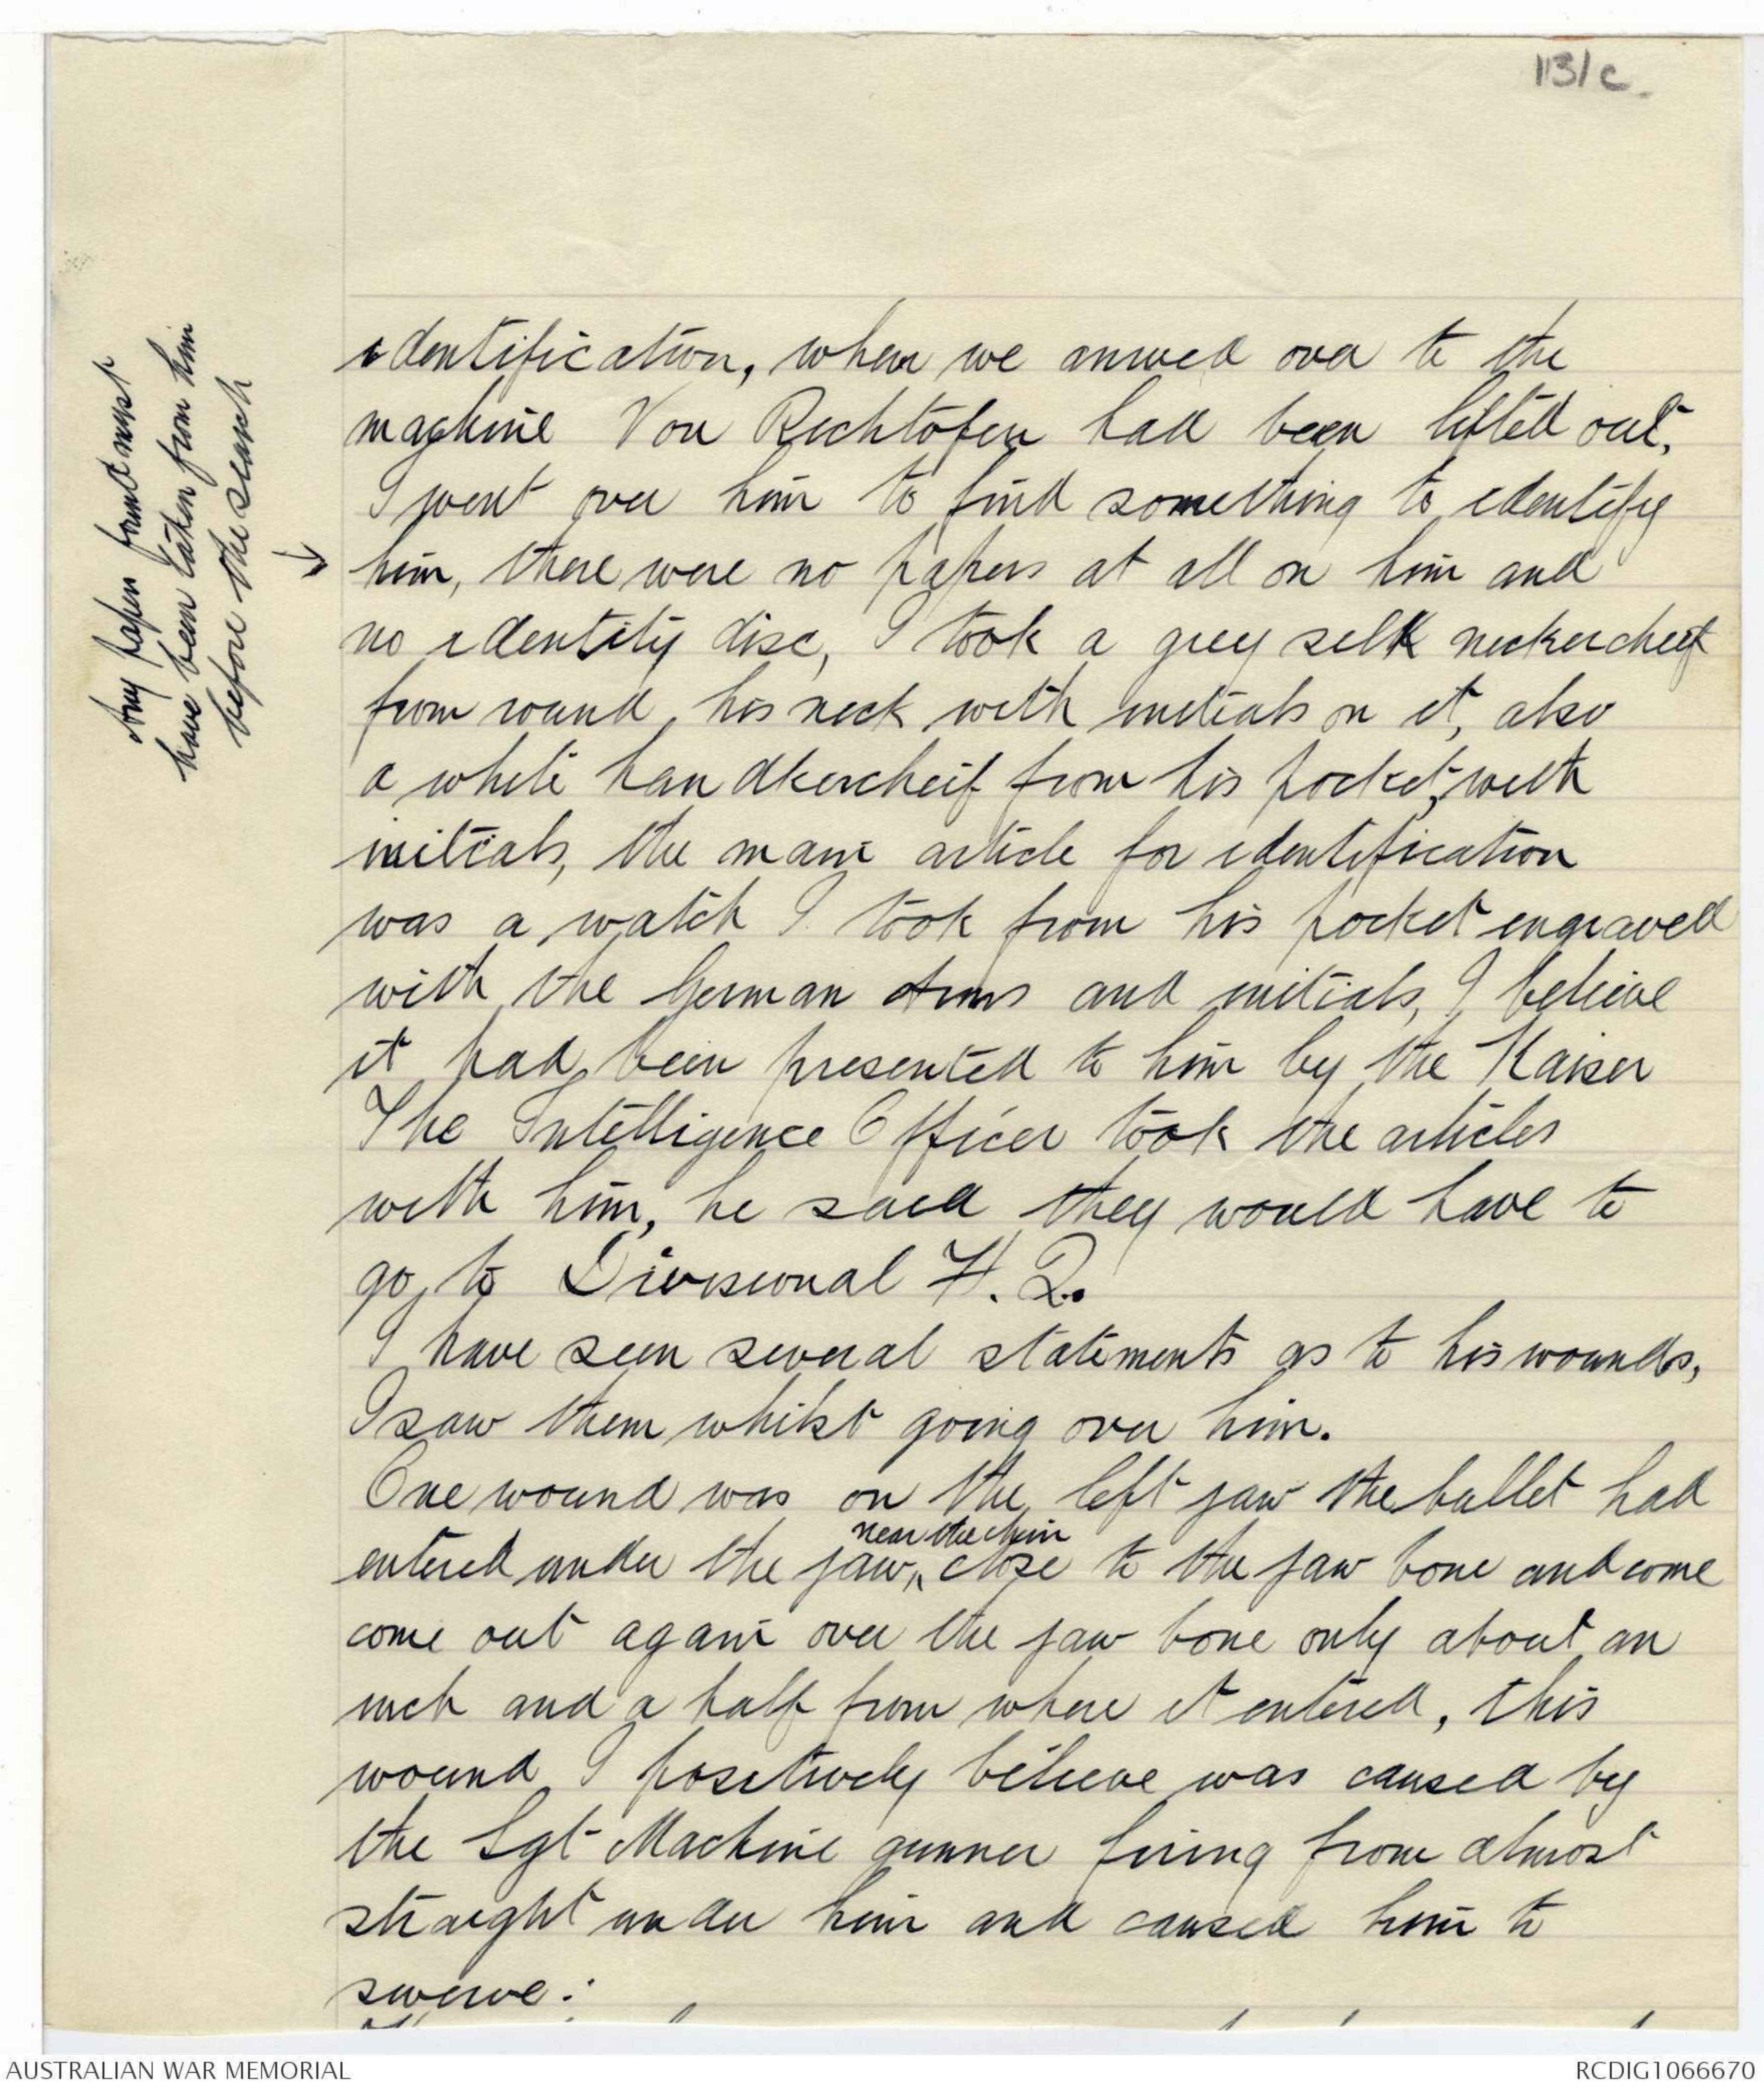 131c.
identification, when we arrived over to the
machine Von Richtofen had been lifted out.
I went over him to find something to identify
him, there were no papers at all on him and
no identity disc, I took a grey silk neckercheif
from round his neck with initials on it, also
a white handkercheif from his pocket, with
initials, the main article for identification
was a watch I took from his pocket engraved
with the German Arms and initials, I believe
it had been presented to him by the Kaiser
The Intelligence Officer took the articles
with him, he said they would have to
go to Divisional H.Q.
I have seen several statements as to his wounds,
I saw them whilst going over him.
One wound was on the left jaw the bullet had
near the chin
entered under the jaw, close to the jaw bone and come
come out again over the jaw bone only about an
inch and a half from where it entered, this
wound I positively believe was caused by
the Sgt Machine gunner firing from almost
straight under him and caused him to
swerve:
Any papers found must
have been taken from him
before the search
AUSTRALIAN WAR MEMORIAL
RCDIG1066670